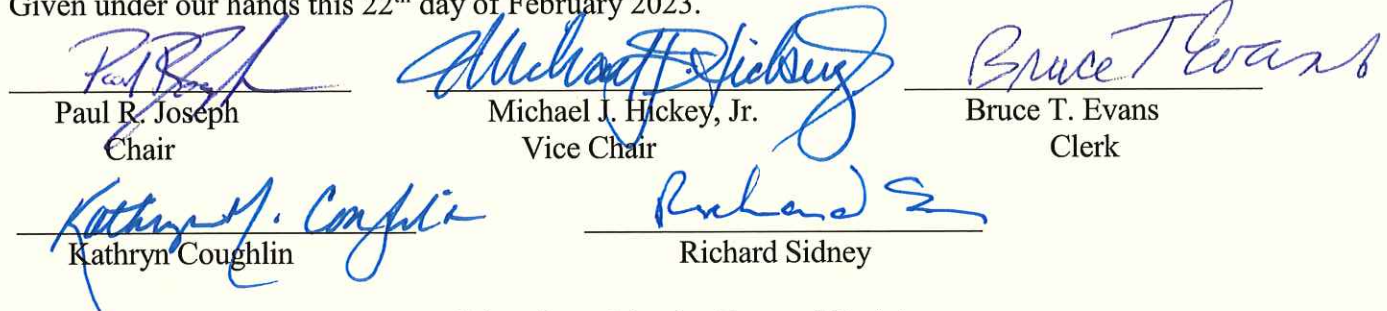 Given under our hands this 22nd day of February 2023.
Paul R. Joseph
Michael J. Hickey, Jr.
Bruce T Evans
Paul R. Joseph Michael J. Hickey, Jr. Bruce T. Evans
Chair Vice Chair Clerk
Kathryn M. Coughlin
Richard S
Kathryn Coughlin Richard Sidney